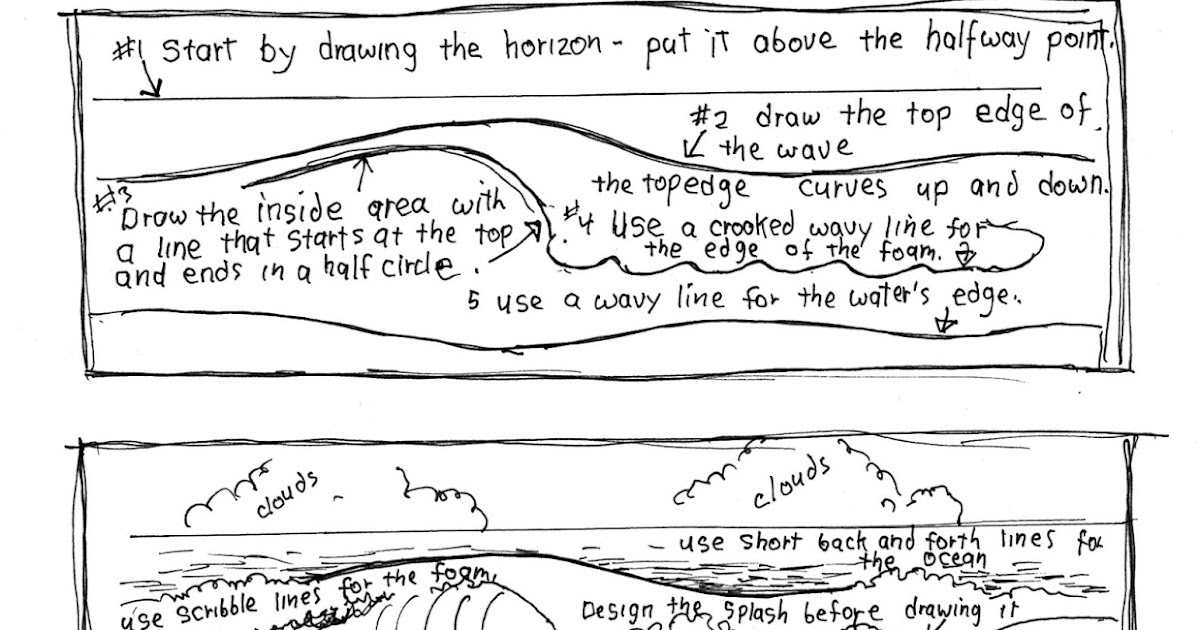 #1 Start by drawing the horizon - put it above the halfway point.
#2 draw the top edge of
the wave
the top edge curves up and down.
#3
Draw the inside area with
a line that starts at the top
and ends in a half circle.
#4 Use a crooked wavy line for
the edge of the foam.
5 use a wavy line for the water's edge.
clouds
clouds
use short back and forth lines for
the ocean
use scribble lines for the foam.
Design the splash before drawing it